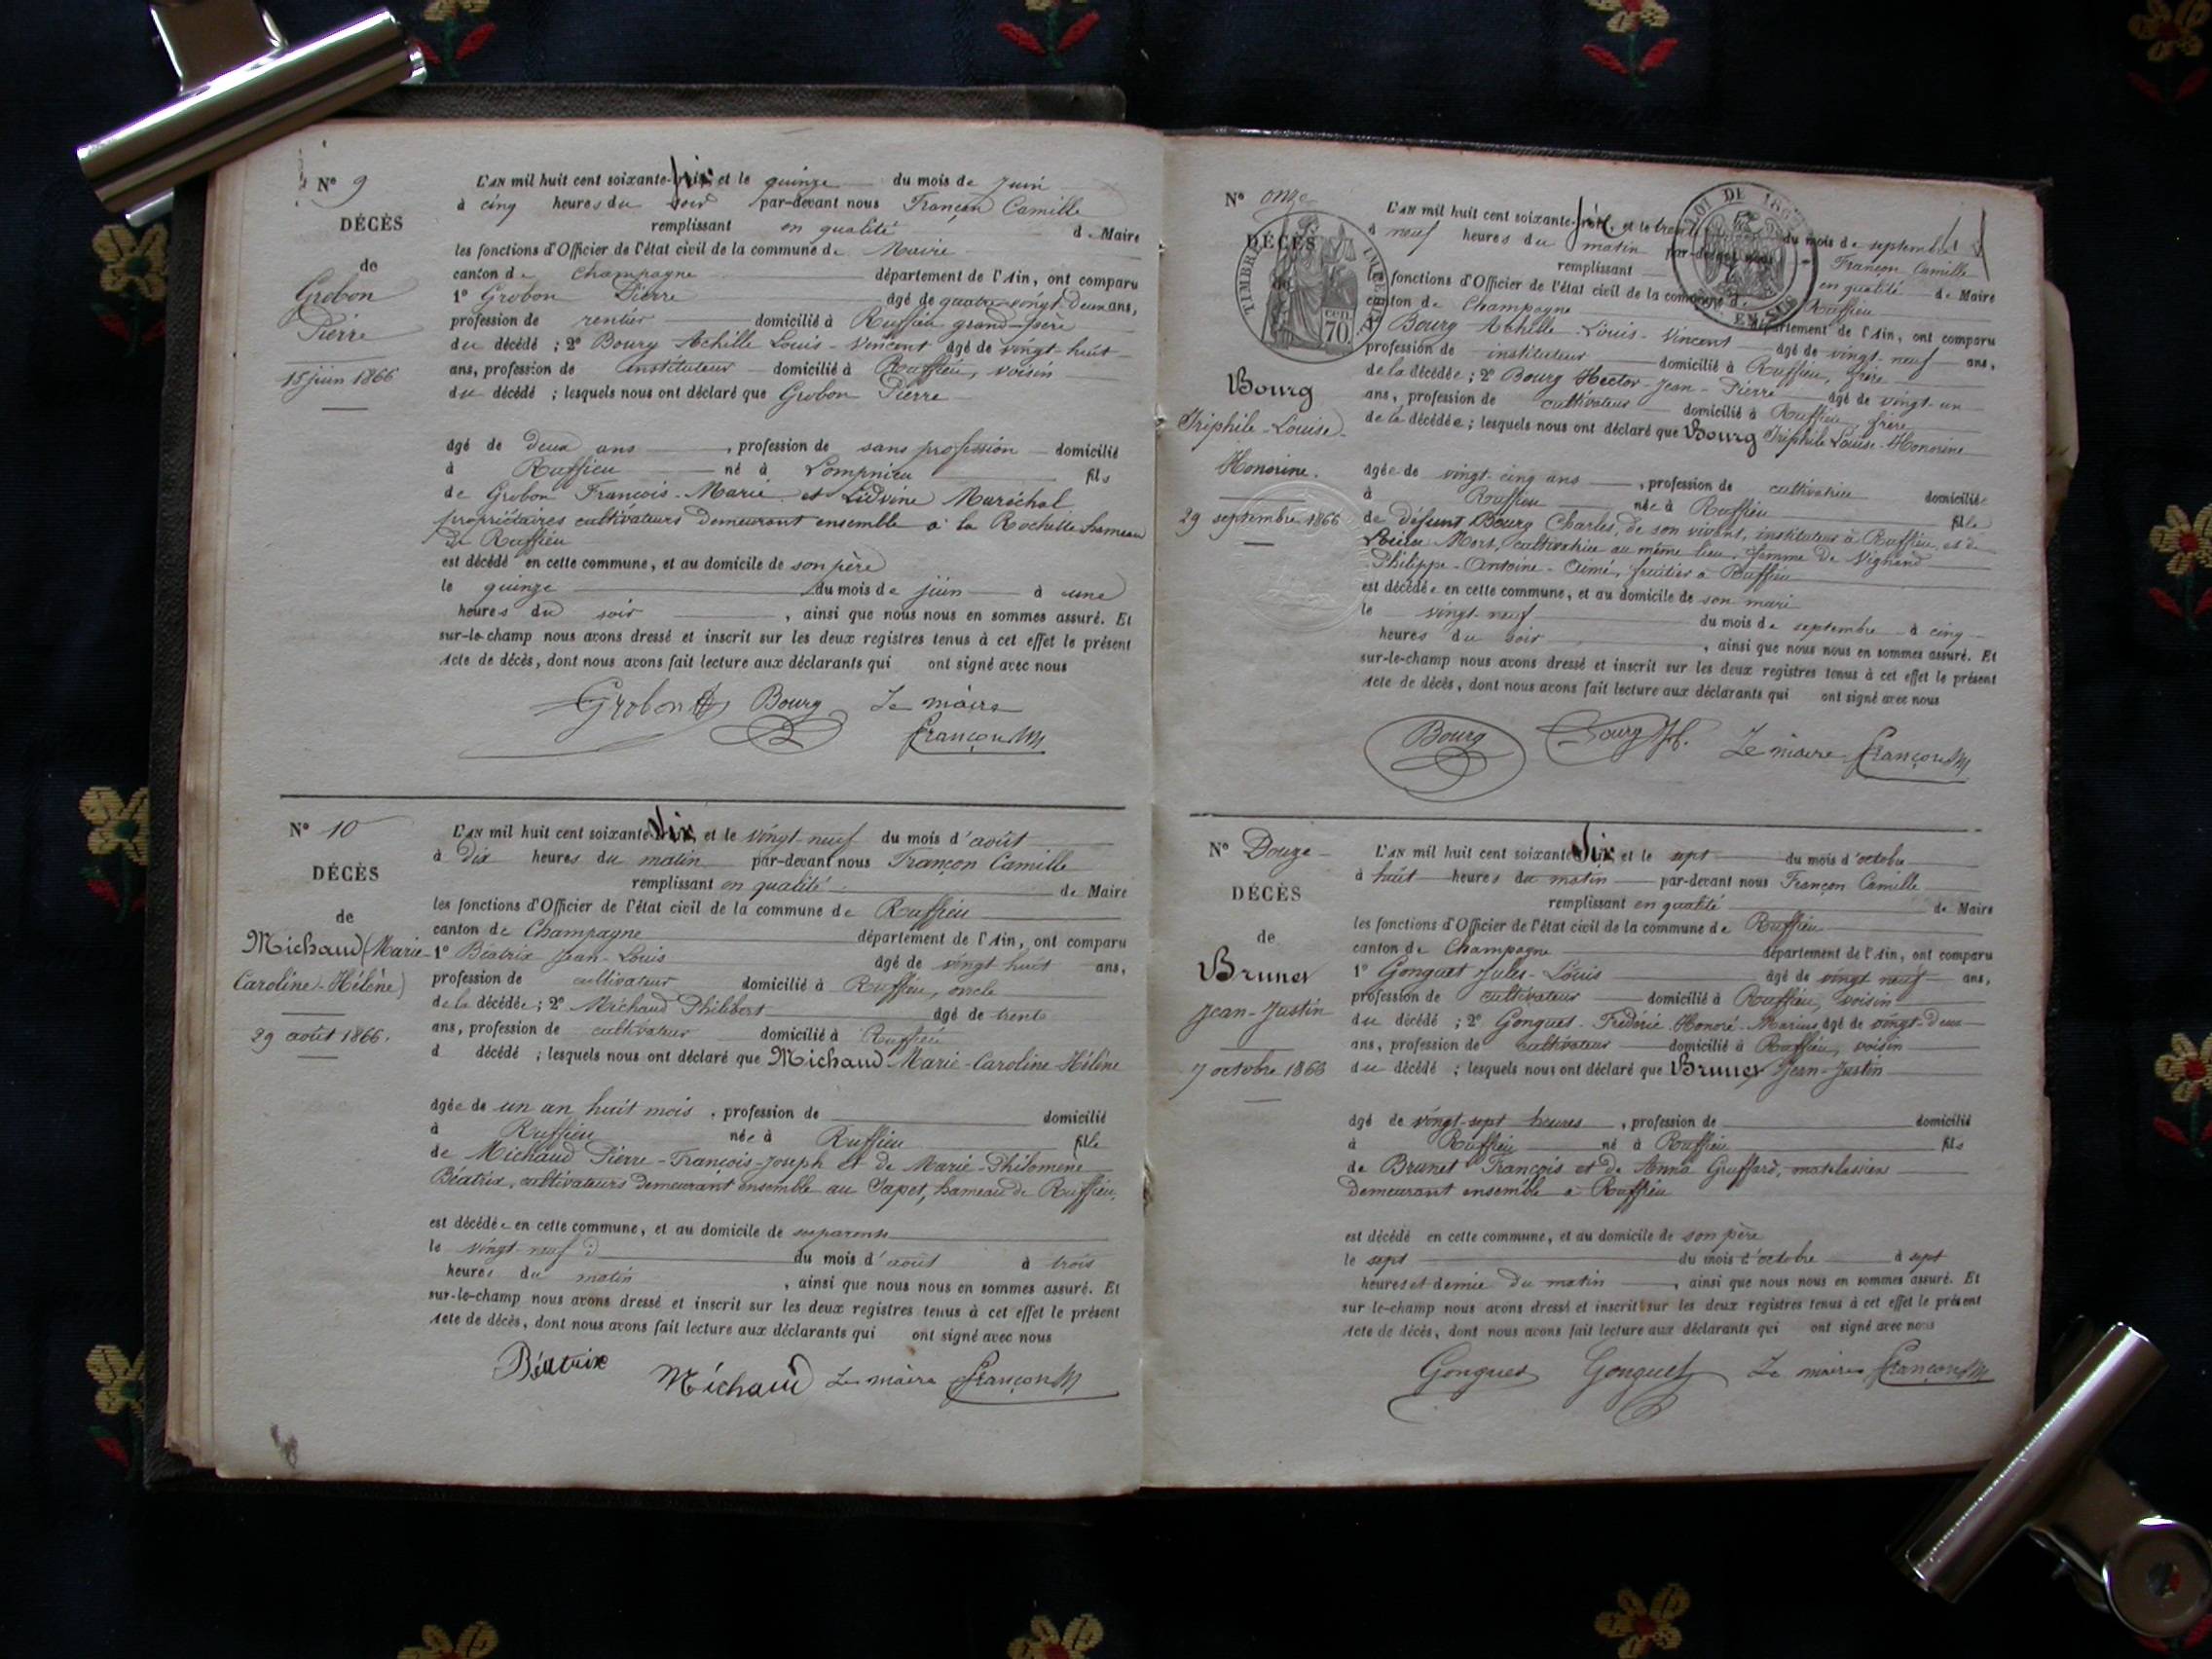 Nº 9
DÉCÈS
de
Grobon
Pierre
15 juin 1866
L'AN mil huit cent soixante-six, et le quinze du mois de juin
à cinq heures du soir par-devant nous Françon Camille
remplissant en qualité de Maire
les fonctions d'Officier de l'état civil de la commune de Maire
canton de Champagne département de l'Ain, ont comparu
1º Grobon Pierre âgé de quatre-vingt-deux ans,
profession de rentier domicilié à Ruffieu grand-père
du décédé ; 2º Bourg Achille Louis-Vincent âgé de vingt-huit
ans, profession de instituteur domicilié à Ruffieu, voisin
du décédé ; lesquels nous ont déclaré que Grobon Pierre
âgé de deux ans , profession de sans profession domicilié
à Ruffieu né à Lompnieu fils
de Grobon François-Marie et Ludvine Maréchal
propriétaires cultivateurs demeurant ensemble à la Rochette hameau
de Ruffieu
est décédé en cette commune, et au domicile de son père
le quinze du mois de juin à une
heures du soir , ainsi que nous nous en sommes assuré. Et
sur-le-champ nous avons dressé et inscrit sur les deux registres tenus à cet effet le présent
Acte de décès, dont nous avons fait lecture aux déclarants qui ont signé avec nous
Grobon Bourg Le maire
Françon
Nº 10
DÉCÈS
de
Michaud (Marie-
Caroline-Hélène)
29 août 1866.
L'AN mil huit cent soixante-six, et le vingt-neuf du mois d'août
à dix heures du matin par-devant nous Françon Camille
remplissant en qualité de Maire
les fonctions d'Officier de l'état civil de la commune de Ruffieu
canton de Champagne département de l'Ain, ont comparu
1º Béatrix Jean-Louis âgé de vingt huit ans,
profession de cultivateur domicilié à Ruffieu, oncle
de la décédée ; 2º Michaud Philibert âgé de trente
ans, profession de cultivateur domicilié à Ruffieu
d décédé ; lesquels nous ont déclaré que Michaud Marie-Caroline-Hélène
âgée de un an huit mois , profession de domicilié
à Ruffieu née à Ruffieu fille
de Michaud Pierre-François-Joseph et de Marie-Philomène
Béatrix, cultivateurs demeurant ensemble au Sapet, hameau de Ruffieu,
est décédée en cette commune, et au domicile de ses parents
le vingt-neuf du mois d'août à trois
heures du matin , ainsi que nous nous en sommes assuré. Et
sur-le-champ nous avons dressé et inscrit sur les deux registres tenus à cet effet le présent
Acte de décès, dont nous avons fait lecture aux déclarants qui ont signé avec nous
Béatrix Michaud Le maire Françon
Nº onze
DÉCÈS
de
TIMBRE IMPÉRIAL
70. cen
LOI DE 1862
EN SUS
Bourg
Triphile-Louise-
Honorine.
29 septembre 1866
L'AN mil huit cent soixante-six, et le trente du mois de septembre
à neuf heures du matin par-devant nous Françon Camille
remplissant en qualité de Maire
les fonctions d'Officier de l'état civil de la commune de Ruffieu
canton de Champagne département de l'Ain, ont comparu
Bourg Achille-Louis-Vincent âgé de vingt-neuf ans,
profession de instituteur domicilié à Ruffieu, frère
de la décédée ; 2º Bourg Hector-Jean-Pierre âgé de vingt-un
ans, profession de cultivateur domicilié à Ruffieu, frère
de la décédée ; lesquels nous ont déclaré que Bourg Triphile Louise-Honorine
âgée de vingt-cinq ans , profession de cultivatrice domiciliée
à Ruffieu née à Ruffieu fille
de défunt Bourg Charles, de son vivant, instituteur à Ruffieu, et de
Louise Mort, cultivatrice au même lieu, femme de Vignand
Philippe-Antoine-Aimé, fruitier à Ruffieu
est décédée en cette commune, et au domicile de son mari
le vingt-neuf du mois de septembre à cinq
heures du soir , ainsi que nous nous en sommes assuré. Et
sur-le-champ nous avons dressé et inscrit sur les deux registres tenus à cet effet le présent
Acte de décès, dont nous avons fait lecture aux déclarants qui ont signé avec nous
Bourg Bourg H. Le maire Françon
Nº Douze
DÉCÈS
de
Brunet
Jean-Justin
7 octobre 1866
L'AN mil huit cent soixante-six, et le sept du mois d'octobre
à huit heures du matin par-devant nous Françon Camille
remplissant en qualité de Maire
les fonctions d'Officier de l'état civil de la commune de Ruffieu
canton de Champagne département de l'Ain, ont comparu
1º Gonguet Jules-Louis âgé de vingt neuf ans,
profession de cultivateur domicilié à Ruffieu, voisin
du décédé ; 2º Gonguet Frédéric-Honoré-Marius âgé de vingt-deux
ans, profession de cultivateur domicilié à Ruffieu, voisin
du décédé ; lesquels nous ont déclaré que Brunet Jean-Justin
âgé de vingt-sept heures , profession de domicilié
à Ruffieu né à Ruffieu fils
de Brunet François et de Anna Gruffard, matelassiers
demeurant ensemble à Ruffieu
est décédé en cette commune, et au domicile de son père
le sept du mois d'octobre à sept
heures et demie du matin , ainsi que nous nous en sommes assuré. Et
sur le-champ nous avons dressé et inscrit sur les deux registres tenus à cet effet le présent
Acte de décès, dont nous avons fait lecture aux déclarants qui ont signé avec nous
Gonguet Gonguet Le maire Françon